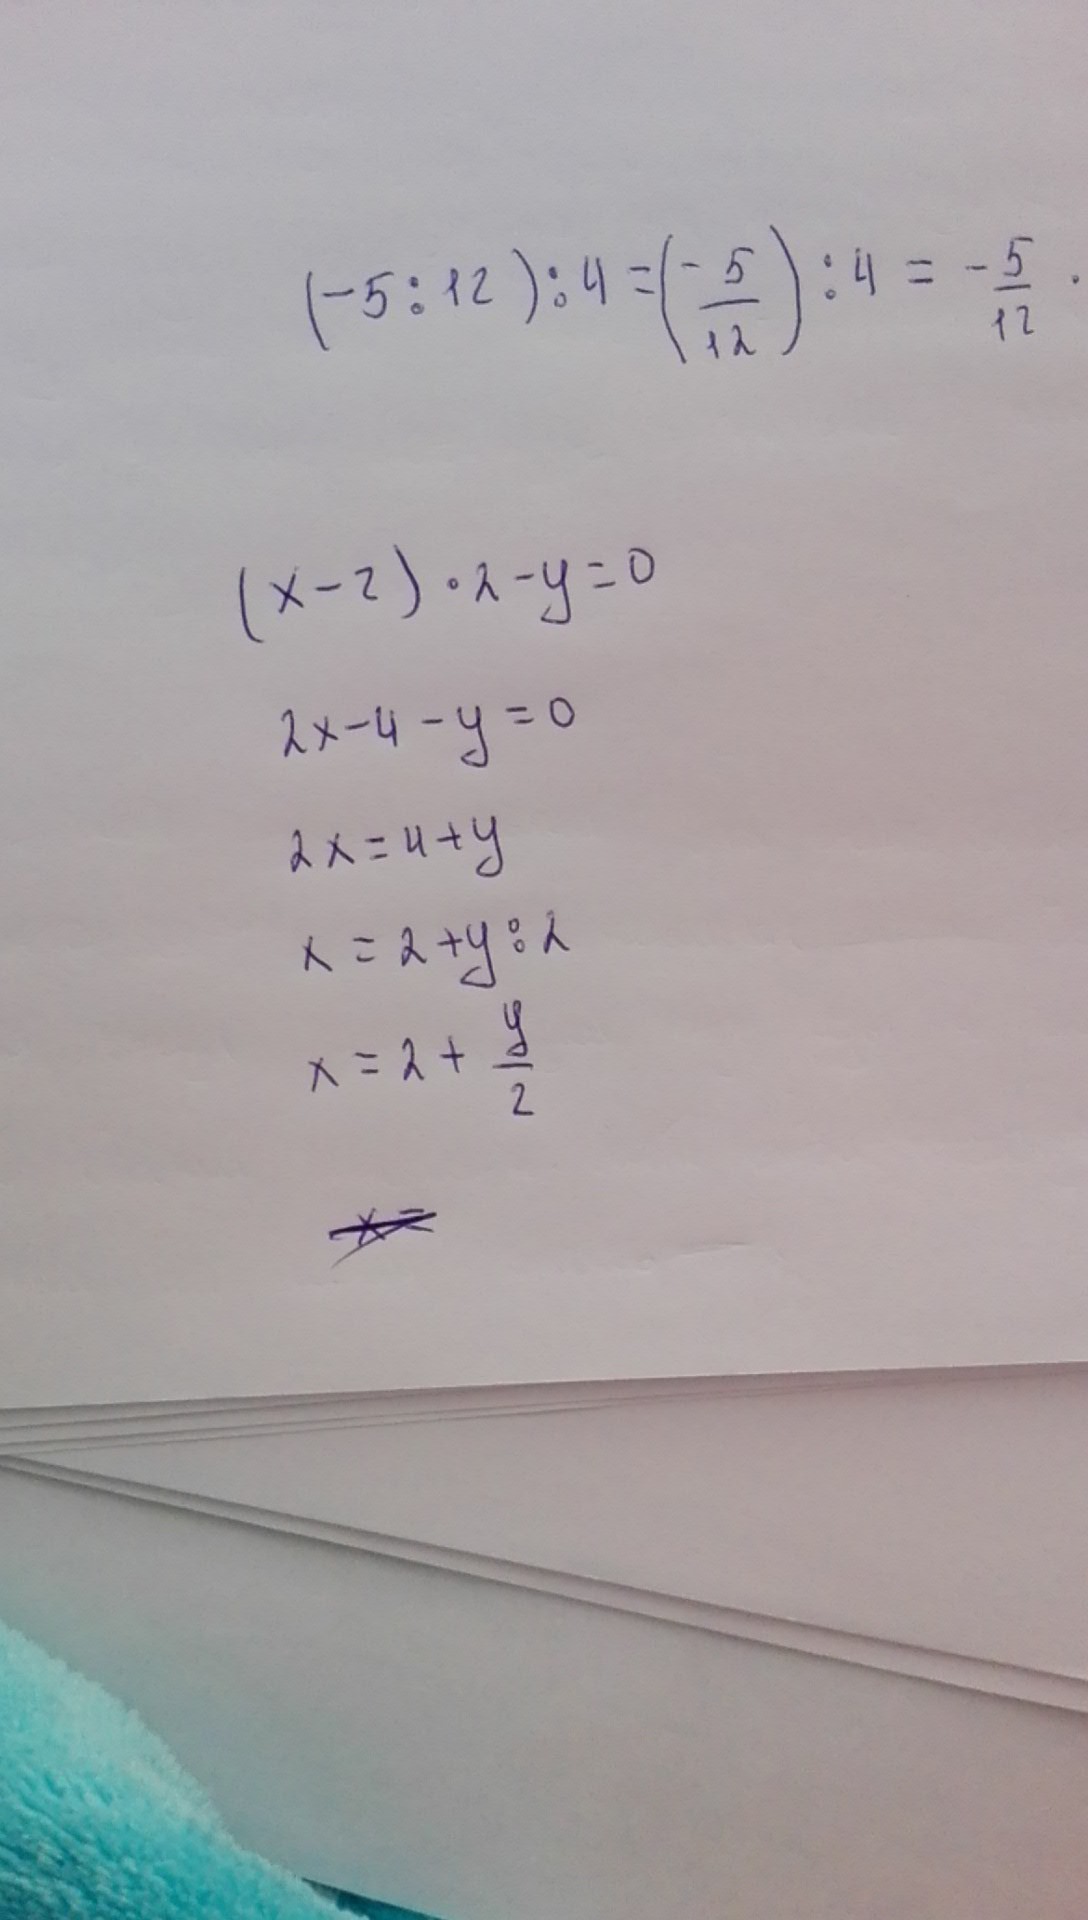 (-5:12):4=(-5/12):4=-5/12.
(x-2)·2-y=0
2x-4-y=0
2x=4+y
x=2+y:2
x=2+y/2
x=